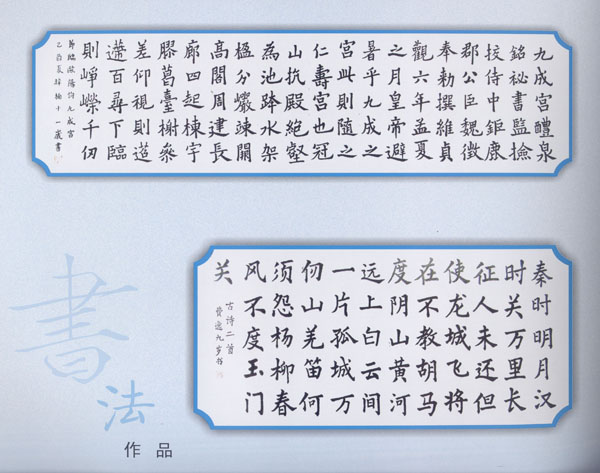 九成宮醴泉
銘祕書監撿
挍侍中鉅鹿
郡公臣魏徵
奉勅撰維貞
觀六年孟夏
之月皇帝避
暑乎九成之
宮此則隨之
仁壽宮也冠
山抗殿絶壑
為池跨水架
楹分巖竦闕
高閣周建長
廊四起棟宇
膠葛臺榭參
差仰視則迢
遰百尋下臨
則崢嶸千仞
節臨歐陽詢九成宮
乙酉夏 十一歲書
秦时明月汉
时关万里长
征人未还但
使龙城飞将
在不教胡马
度阴山黄河
远上白云间
一片孤城万
仞山羌笛何
须怨杨柳春
风不度玉门
关
古诗二首
费逸九岁书
書法
作品